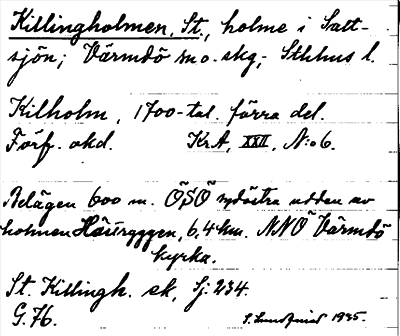 Killingholmen, St., holme i Salt-
sjön; Värmdö sn o. skg; Sthlms l.
Kilholm, 1700-tal. förra del.
Förf. okd. KrA, XXII, N:o 6.
Belägen 600 m. ÖSÖ sydöstra udden av
holmen Häggen, 6,4 km. NNÖ Värmdö
kyrka.
St. Killingh. sk, Sj: 234.
G. 76. S. Lundqvist 1935.